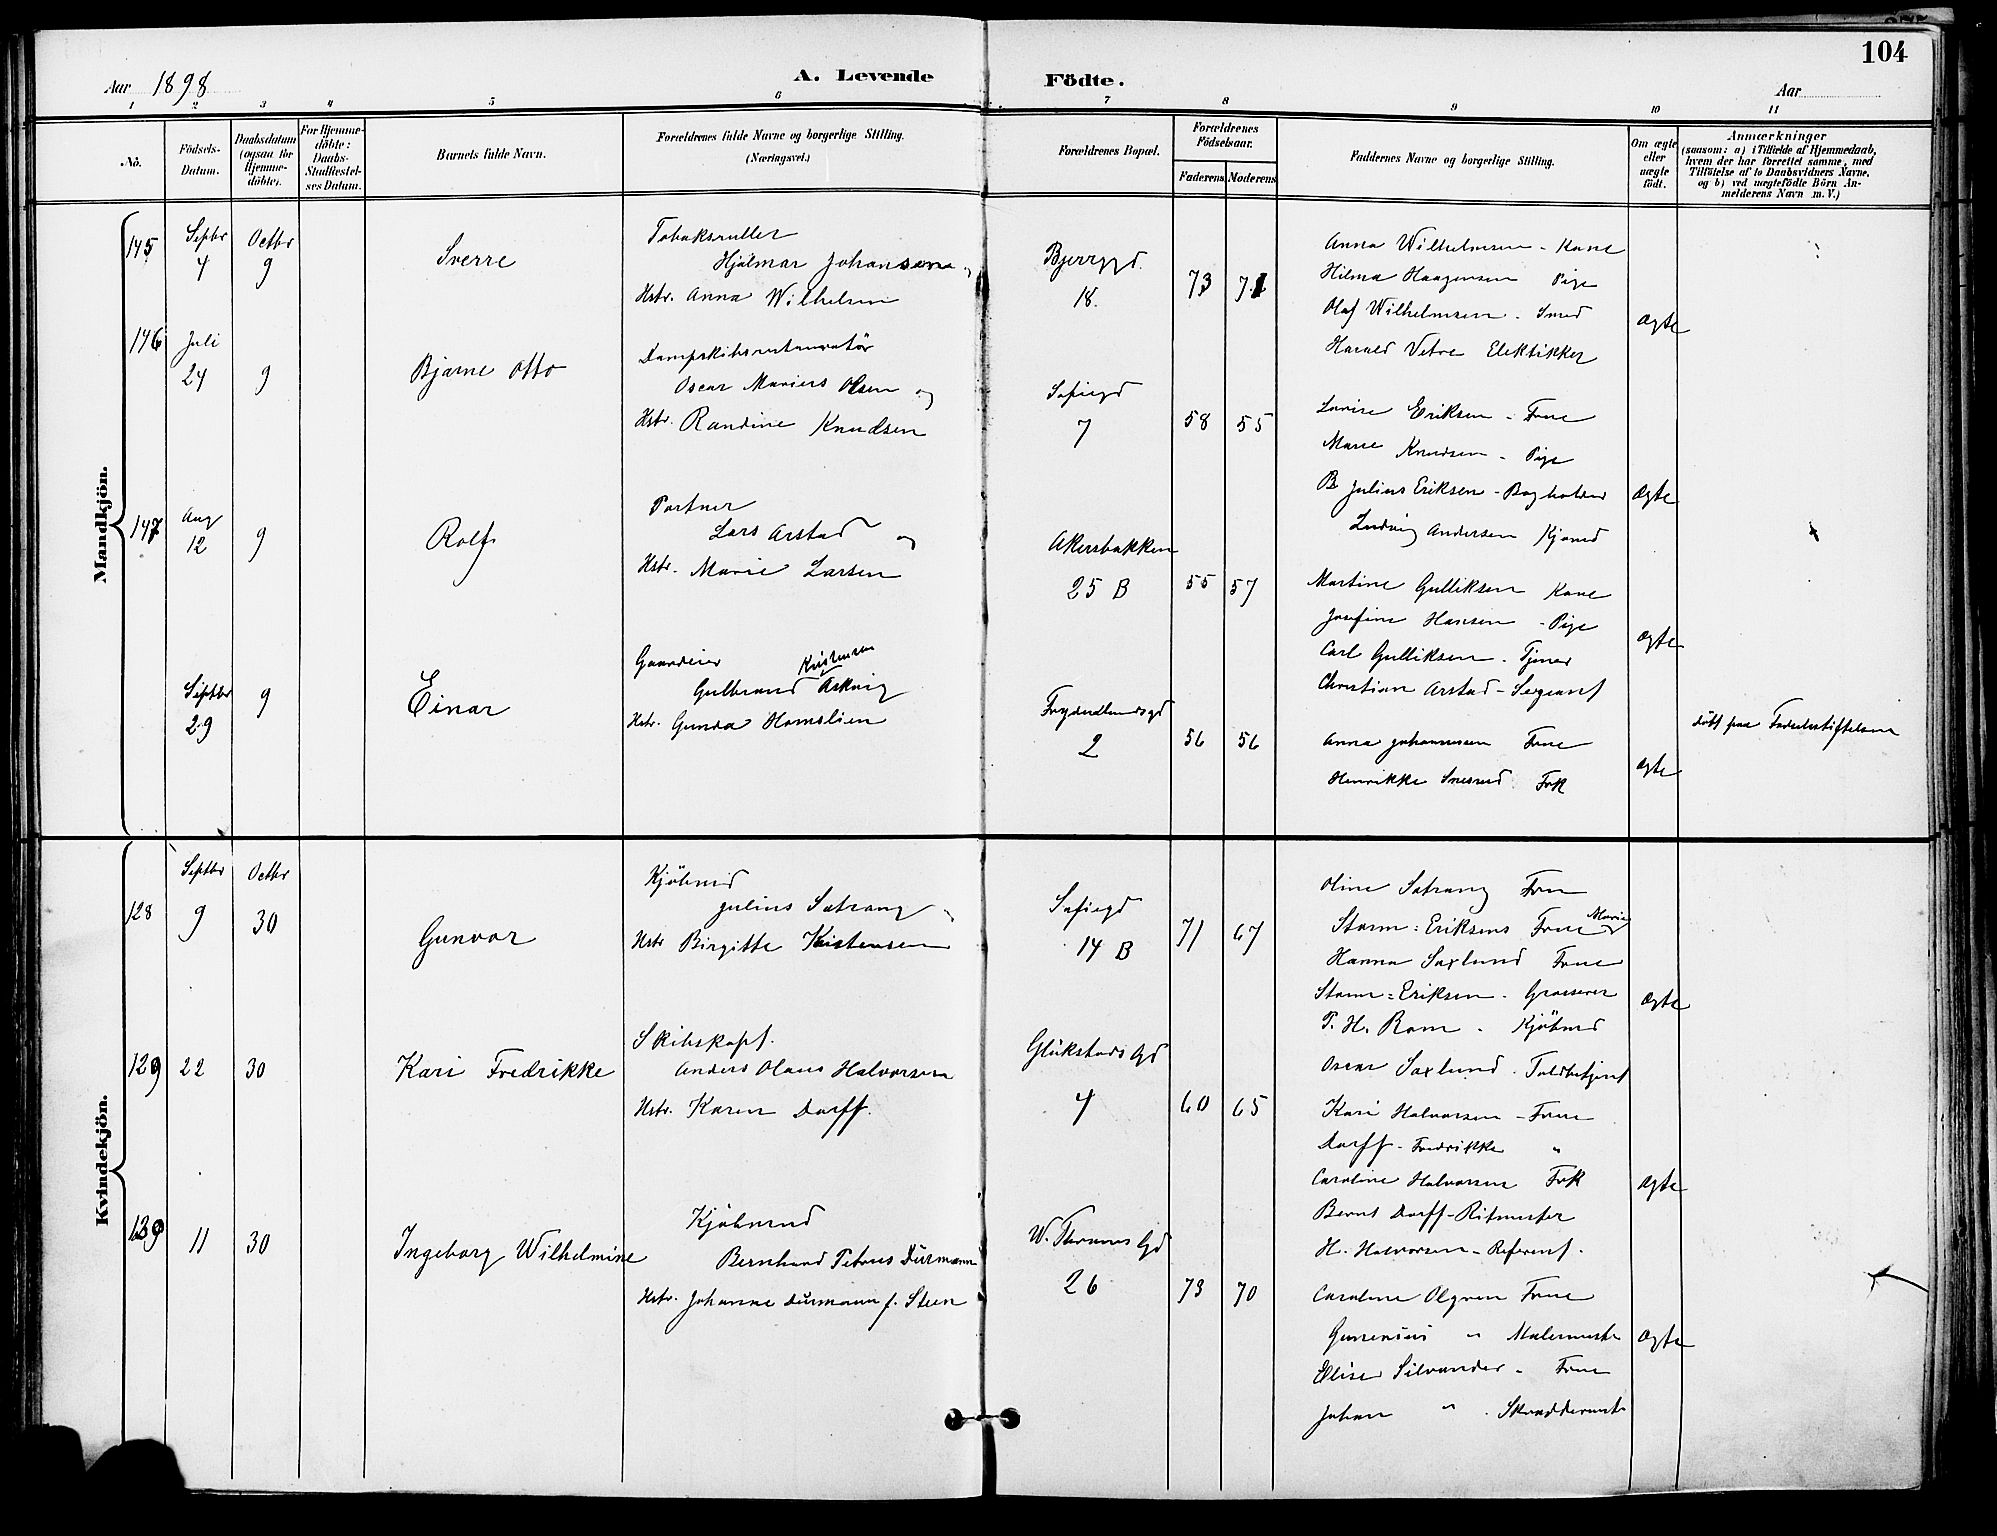 104
Aar 1898
A. Levende Födte.
Aar
1 2 3 4 5 6 7 8 9 10 11
No.
Födsels-Datum.
Daabsdatum (ogsaa for Hjemme-döbte).
For Hjemme-döbte: Daabs-Stadfæstel-ses Datum.
Barnets fulde Navn.
Forældrenes fulde Navne og borgerlige Stilling. (Næringsvei.)
Forældrenes Bopæl.
Forældrenes Födselsaar.
Faderens Moderens
Faddernes Navne og borgerlige Stilling.
Om ægte eller uægte födt.
Anmærkninger
(saasom: a) i Tilfælde af Hjemmedaab,
hvem der har forrettet samme, med
Tilföielse af to Daabsvidners Navne,
og b) ved uægtefödte Börn An-
melderens Navn m. V.)
Mandkjön.
145 Septbr 4 Octbr 9
Sverre
Tobaksruller
Hjalmar Johansen og
Hstr. Anna Wilhelmsen
Bjerregd.
18.
73 71
Anna Wilhelmsen - Kone
Hilma Haagensen Pige
Olaf Wilhelmsen - Smed
Harald Vetre Elektikker
Ægte
146 Juli 24 9
Bjarne Otto
Dampskibsrestauratör
Oscar Marius Olsen og
Hstr. Randine Knudsen
Sofiegd
7
58 55
Lovise Eriksen - Frue
Marie Knudsen - Pige
B Julius Eriksen - Bogholder
Ludvig Andersen Kjömd
Ægte
147 Aug 12 9
Rolf
Portner
Lars Arstad og
Hstr. Marie Larsen
Akersbakken
25 B
55 57
Martine Gulliksen Kone
Josefine Hansen - Pige
Carl Gulliksen - Tjener
Christian Arstad - Sergeant
Ægte
Septbr 29 9
Einar
Gaardeier
Kristensen
Gulbrand Askvig
Hstr. Gunda Homslien
Frydenlundsgd
2
56 56
Anna Johannessen Frue
Henrikke Frk
Ægte
döbt paa Födselsstiftelsen
Kvindekjön.
128 Septbr 9 Octbr 30
Gunvor
Kjöbmd
Julius Satrang
Hstr Birgitte Kristensen
Sofiegd
14 B
71 67
Oline Satrang Frue
Marie
Storm-Eriksens Frue
Hanna Saxlund Frue
Storm-Eriksen - Grosserer
T. H. Rom - Kjöbmd
Oscar Saxlund - Toldbetjent
Ægte
129 22 30
Kari Fredrikke
Skibskapt.
Anders Olaus Halvorsen
Hstr. Karen Dorff.
Glükstads Gd
4
60 65
Kari Halvorsen - Frue
Dorff - Fredrikke "
Caroline Halvorsen Frk
Bernt Dorff - Ritmester
H. Halvorsen - Referent.
Ægte
130 11 30
Ingeborg Wilhelmine
Kjöbmand
Bernhard Petrus Dürmann
Hstr. Johanne Dürmann f. Steen
W. Thranes Gd
26
73 70
Caroline Frue
" Malermester
Elise Silvander - Frue
Johan " Skræddermester
Ægte